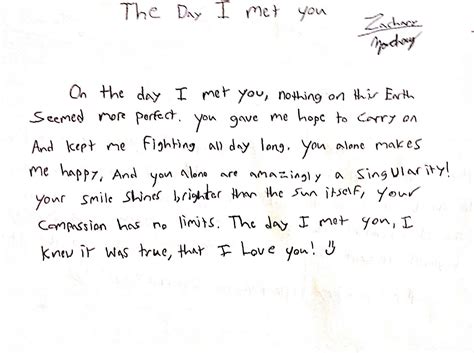 The Day I met you
Zachary
On the day I met you, nothing on this Earth
Seemed more perfect. you gave me hope to carry on
And kept me Fighting all day long. you alone makes
me happy, And you alone are amazingly a Singularity!
your smile Shines brighter than the sun itself, your
Compassion has no limits. The day I met you, I
Knew it was true, that I Love you!